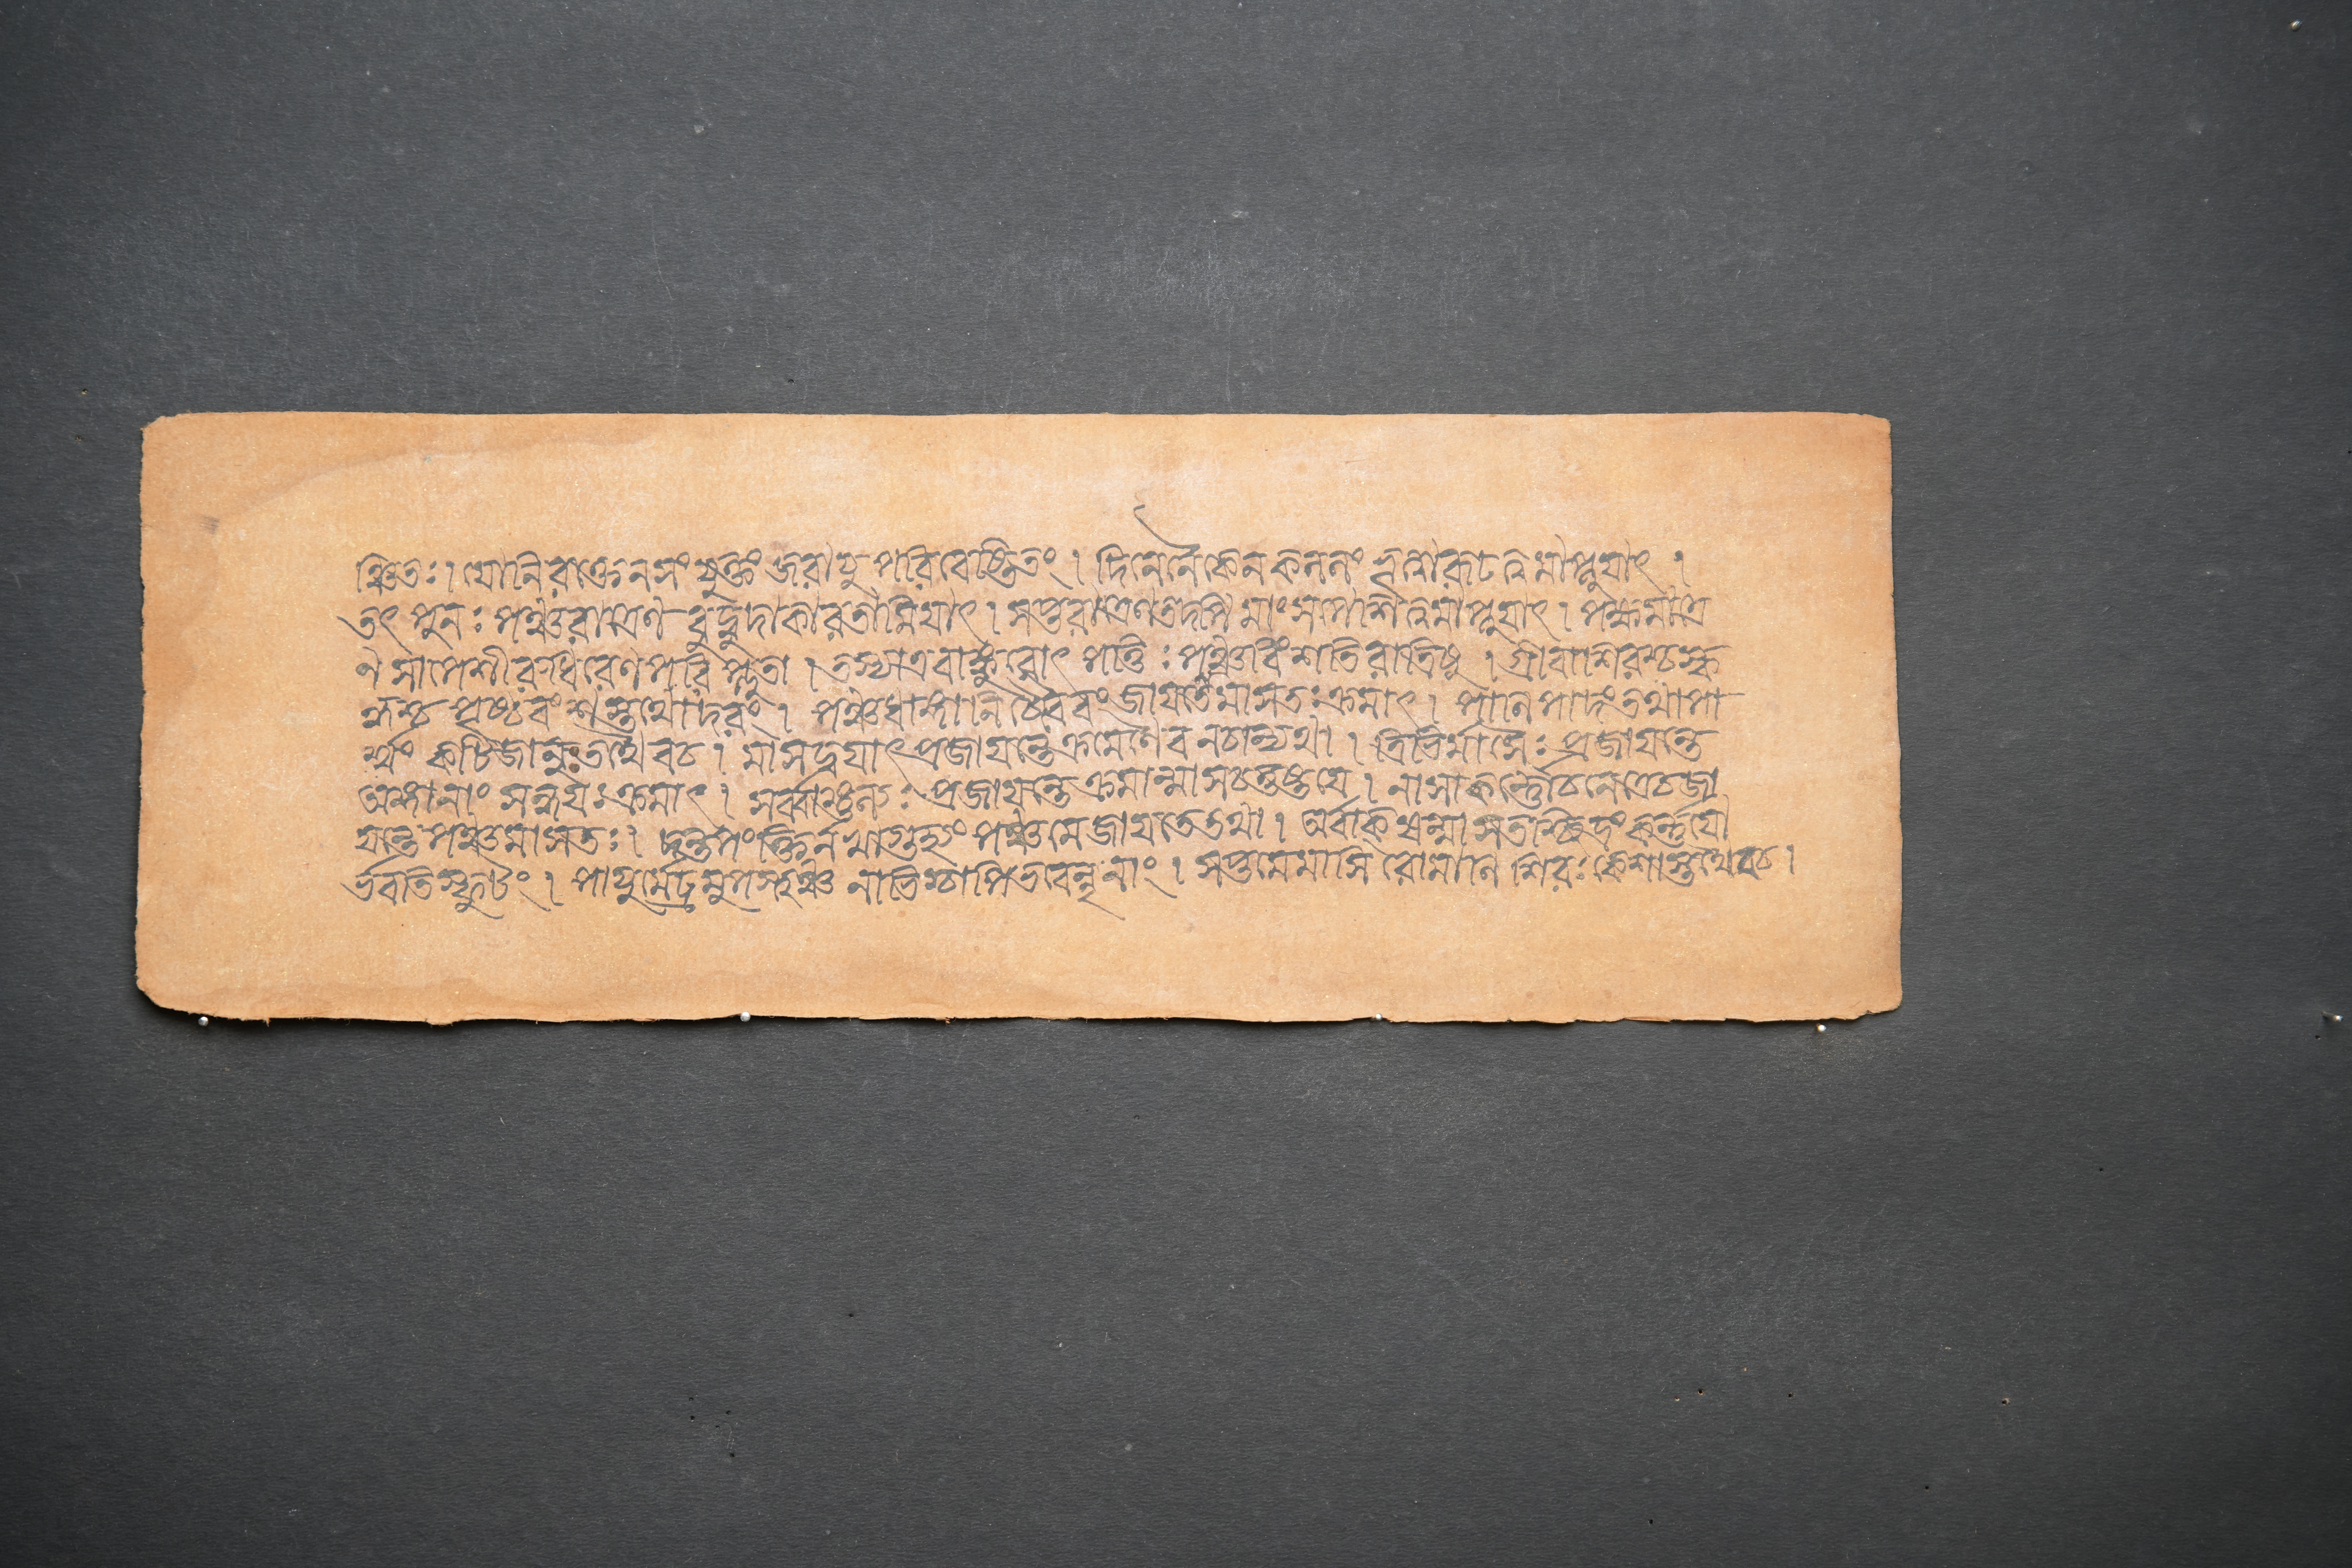 ঞ্চিতঃ। যোনিরক্তেনসংযুক্তং জরায়ু পরিবেষ্টিতং। দিনেনৈকেন কললং ভূত্বারূঢত্বমাপ্নুযাৎ।
তৎ পুনঃ পঞ্চরাত্রেণ বুদ্বুদাকারতামিযাৎ। সপ্তরাত্রেণতদপি মাংসপেশিত্বমাপ্নুযাৎ। পক্ষমাত্রে
ণ সাপেশীরুধিরেণপরিপ্লুতা। তস্যাএবাঙ্কুরোৎপত্তিঃ পঞ্চবিংশতিরাত্রিষু। গ্রীবাশিরশ্চস্ক
ন্ধশ্চ পৃষ্ঠবংশস্তথোদরং। পঞ্চধাঙ্গানি চৈবৈবং জাযতেমাসতঃক্রমাৎ। পানিপাদংতথাপা
র্শ্বং কটিজানুংতথৈবচ। মাসদ্বযাৎপ্রজাযন্তেক্রমেণৈবনচান্যথা। ত্রিভির্মাসৈঃ প্রজাযন্তে
অঙ্গানাং সন্ধযঃক্রমাৎ। সর্ব্বাঙ্গুল্যঃ প্রজাযন্তেক্রমান্মাসচতুষ্টযে। নাসাকর্ণৌচনেত্রেচজা
যন্তেপঞ্চমাসতঃ। দন্তপংক্তির্নখাগুহ্যং পঞ্চমেজাযতেতথা। অর্বাক্ষন্মাসতশ্ছিদ্রংকর্ণযো
র্ভবতিস্ফুটং। পাযুর্মেঢ্রমুপস্থঞ্চ নাভিশ্চাপিভবেন্নৃনাং। সপ্তমেমাসি রোমানি শিরঃকেশাস্তথৈবচ।